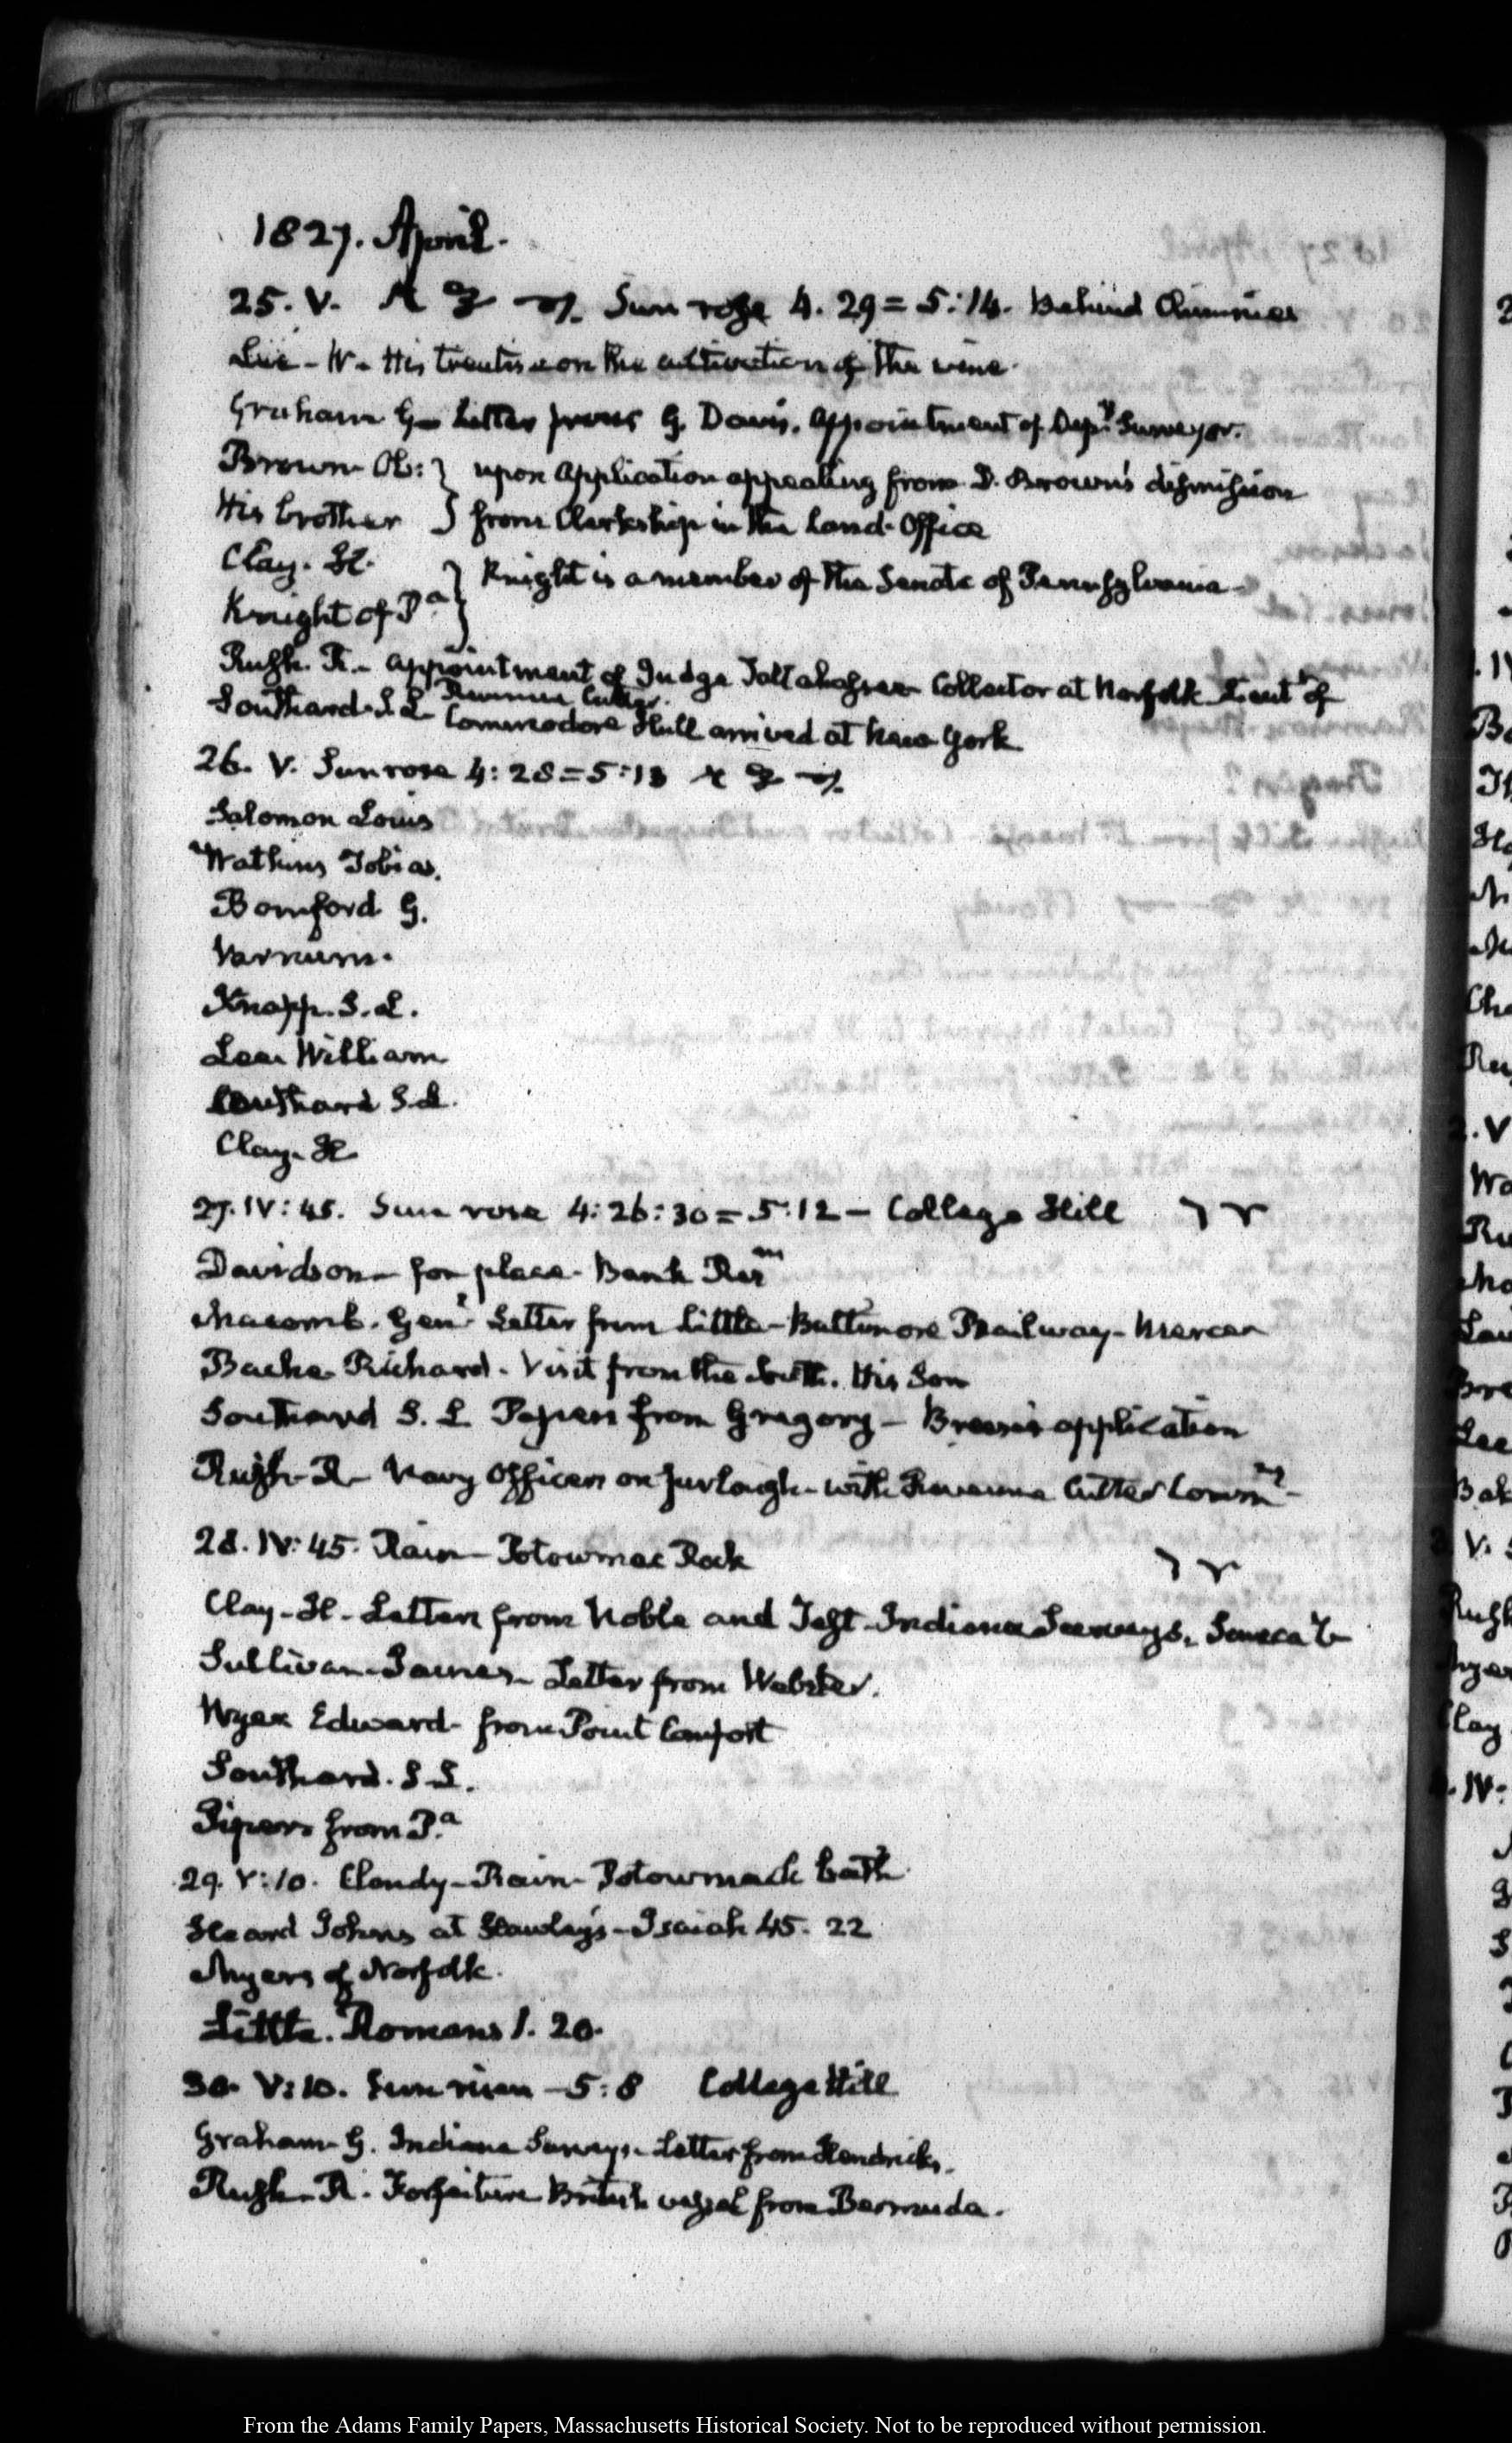 1827. April.
25. V. Sun rose 4. 29 = 5:14. Behind Chimnies
Lee - W - His treatise on the cultivation of the vine.
Graham G - Letter from G. Davis. Appointment of Depy. Surveyor.
Brown Ob: } upon application appealing from D. Brown's dismission
His brother } from Clerkship in the Land-Office
Clay. H. } Knight is a member of the Senate of Pennsylvania -
Knight of Pa. }
Rush. R. - Appointment of Judge Tallahassee Collector at Norfolk Lieut of
Revenue Cutter.
Southard. S. L Commodore Hull arrived at New York
26. V. Sun rose 4:28 = 5:13
Salomon Louis
Watkins Tobias.
Bomford G.
Varnum.
Knapp. S. L.
Lee William
Southard S. L.
Clay. H
27. IV:45. Sun rose 4:26:30 = 5:12 - College Hill
Davidson - for place - Bank
Macomb. Genl. Letter from Little - Baltimore Railway - Mercer
Bache Richard - Visit from the South. His Son
Southard S. L Papers from Gregory - application
Rush - R - Navy Officers on furlough - with Revenue Cutter
28. IV:45. Rain - Potowmac Rock
Clay - H - Letters from Noble and Test - Indiana Surveys.
Sullivan - James - Letter from Webster.
Wyer Edward - from Point Comfort
Southard. S. L.
Pipers from Pa.
29. V:10. Cloudy - Rain - Potowmack bath
Heard Johns at Hawley's - Isaiah 45. 22
Myers of Norfolk.
Little. Romans 1. 20.
30. V:10. Sun risen - 5:8 College Hill
Graham - G. Indiana Surveys - Letter from Hendricks.
Rush - R. Forfeiture British vessel from Bermuda.
From the Adams Family Papers, Massachusetts Historical Society. Not to be reproduced without permission.